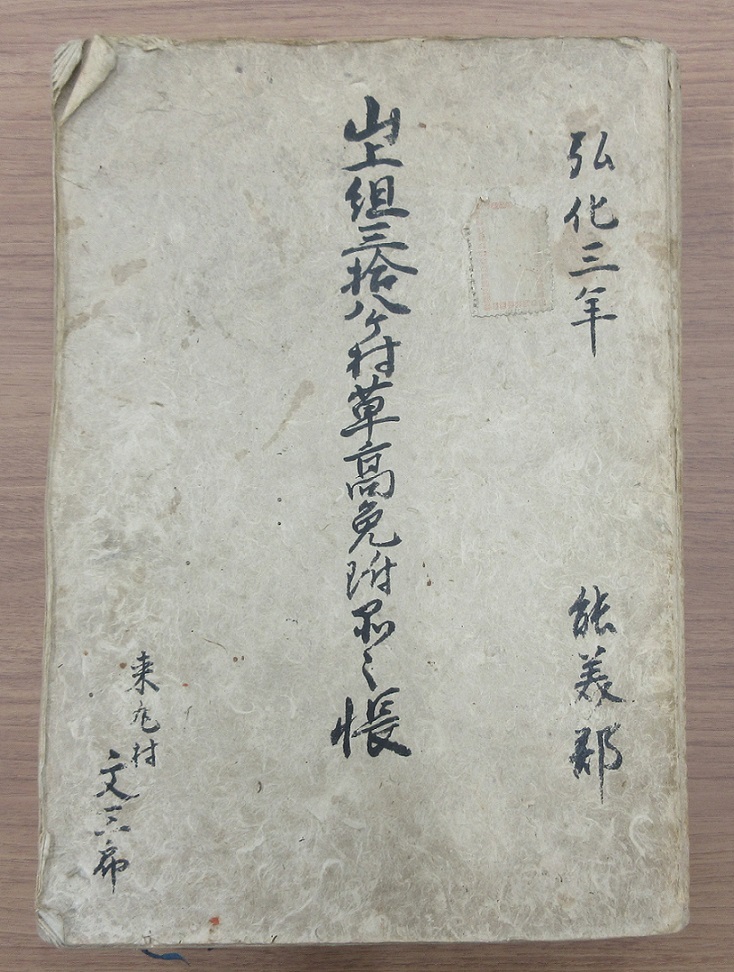 弘化三年
能美郡
山上組三拾八ケ村草高免附品々帳
来丸村
文三郎